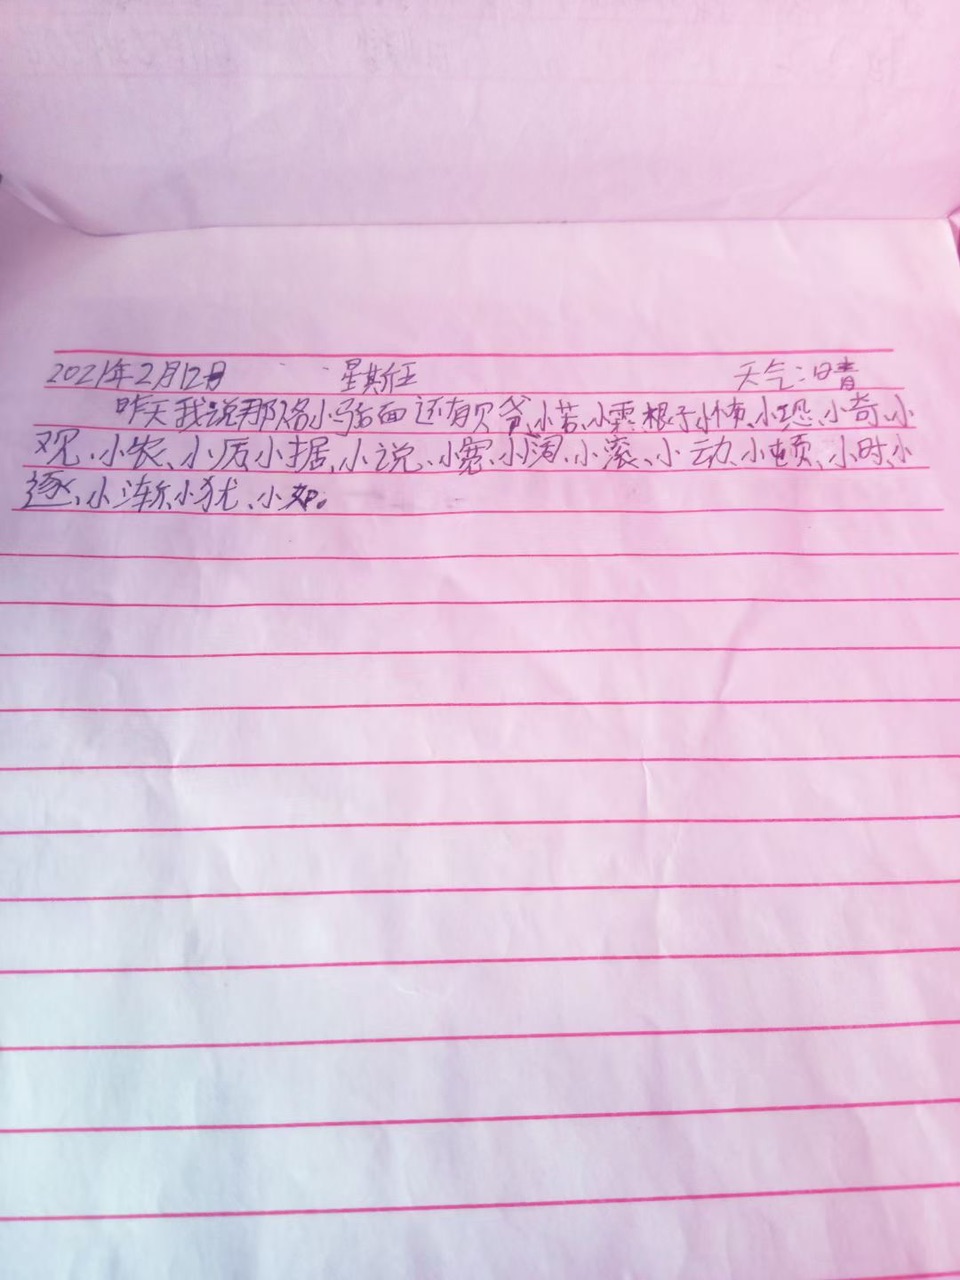 2021年2月12日 星期五 天气:晴
昨天我说那只名小马后面还有贝爷、小若、小霆、根子、小慎、小恐、小奇、小
观、小农、小厉、小据、小说、小宽、小阔、小滚、小动、小顿、小时、小
逐、小渐、小犹、小如。